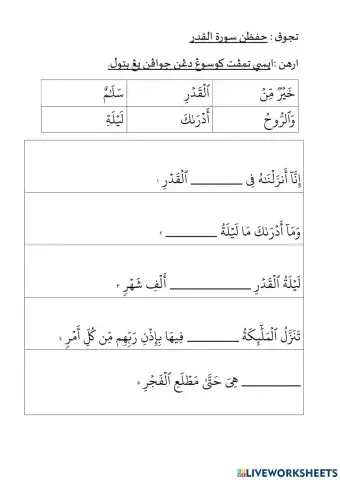 تجوق : حفظن سورة القدر
ارهن :ايسي تمڤت كوسوڠ دڠن جواڤن يڠ بتول.
خَيْرٌ مِّنْ ٱلْقَدْرِ سَلَـٰمٌ
وَٱلرُّوحُ أَدْرَىٰكَ لَيْلَةِ
إِنَّآ أَنزَلْنَـٰهُ فِى ________ ٱلْقَدْرِ ١
وَمَآ أَدْرَىٰكَ مَا لَيْلَةُ ________ ٢
لَيْلَةُ ٱلْقَدْرِ ____________ أَلْفِ شَهْرٍ ٣
تَنَزَّلُ ٱلْمَلَـٰٓئِكَةُ ________ فِيهَا بِإِذْنِ رَبِّهِم مِّن كُلِّ أَمْرٍ ٤
________ هِىَ حَتَّىٰ مَطْلَعِ ٱلْفَجْرِ ٥
LIVEWORKSHEETS